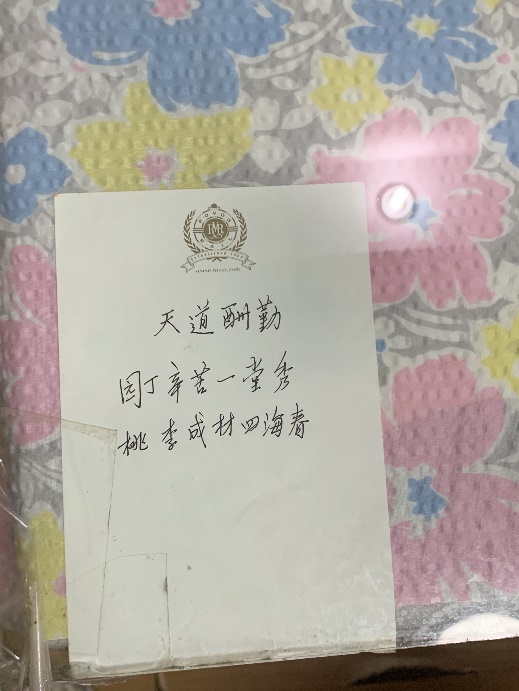 天道酬勤
园丁辛苦一堂秀
桃李成材四海春